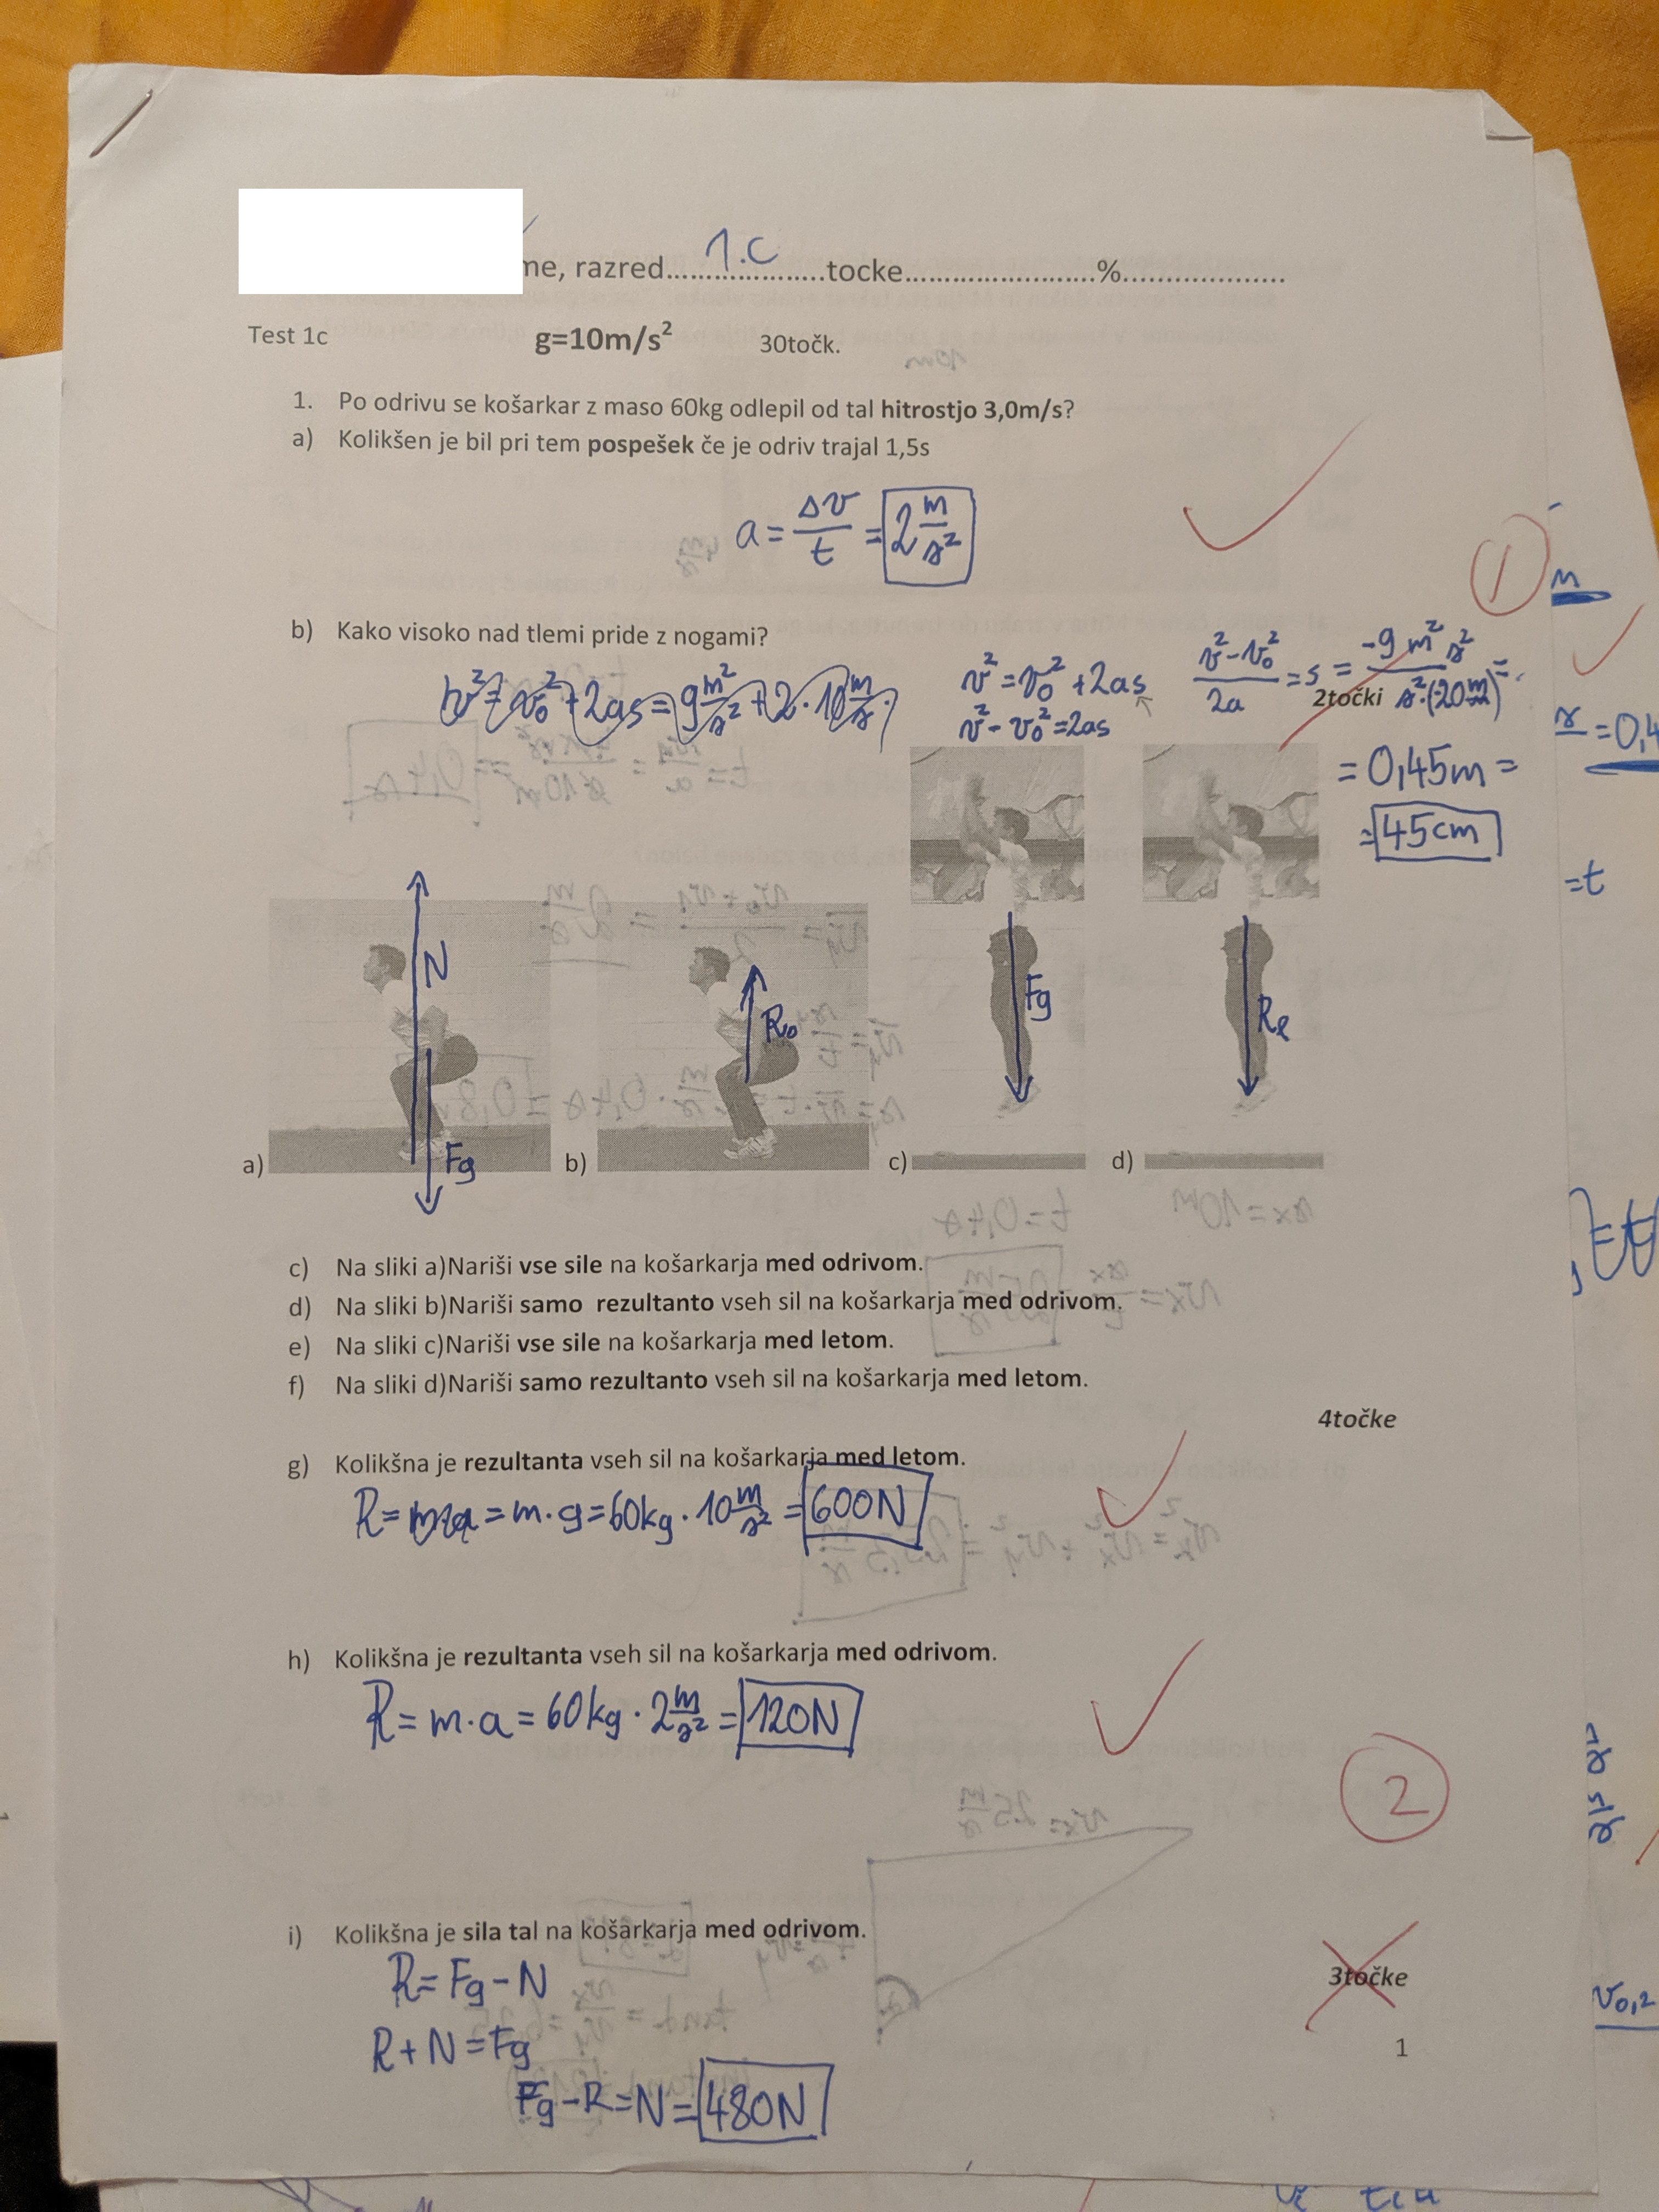 me, razred.....1.C.....tocke........................%....................
Test 1c g=10m/s² 30točk.
1. Po odrivu se košarkar z maso 60kg odlepil od tal hitrostjo 3,0m/s?
a) Kolikšen je bil pri tem pospešek če je odriv trajal 1,5s
a = Δv/t = 2 m/s²
1
b) Kako visoko nad tlemi pride z nogami?
v² = v₀² + 2as
v² - v₀² = 2as
(v² - v₀²)/2a = s = -9 m² s²/s²·(-20m) =
2točki
= 0,45m =
= 45cm
N
Fg
R₀
Fg
Rl
a) b) c) d)
c) Na sliki a)Nariši vse sile na košarkarja med odrivom.
d) Na sliki b)Nariši samo rezultanto vseh sil na košarkarja med odrivom.
e) Na sliki c)Nariši vse sile na košarkarja med letom.
f) Na sliki d)Nariši samo rezultanto vseh sil na košarkarja med letom.
4točke
g) Kolikšna je rezultanta vseh sil na košarkarja med letom.
R = m·g = 60kg · 10 m/s² = 600N
h) Kolikšna je rezultanta vseh sil na košarkarja med odrivom.
R = m·a = 60kg · 2 m/s² = 120N
2
i) Kolikšna je sila tal na košarkarja med odrivom.
R = Fg - N
3točke
R + N = Fg
Fg - R = N = 480N
1
m
= 0,4
= t
v₀,₂